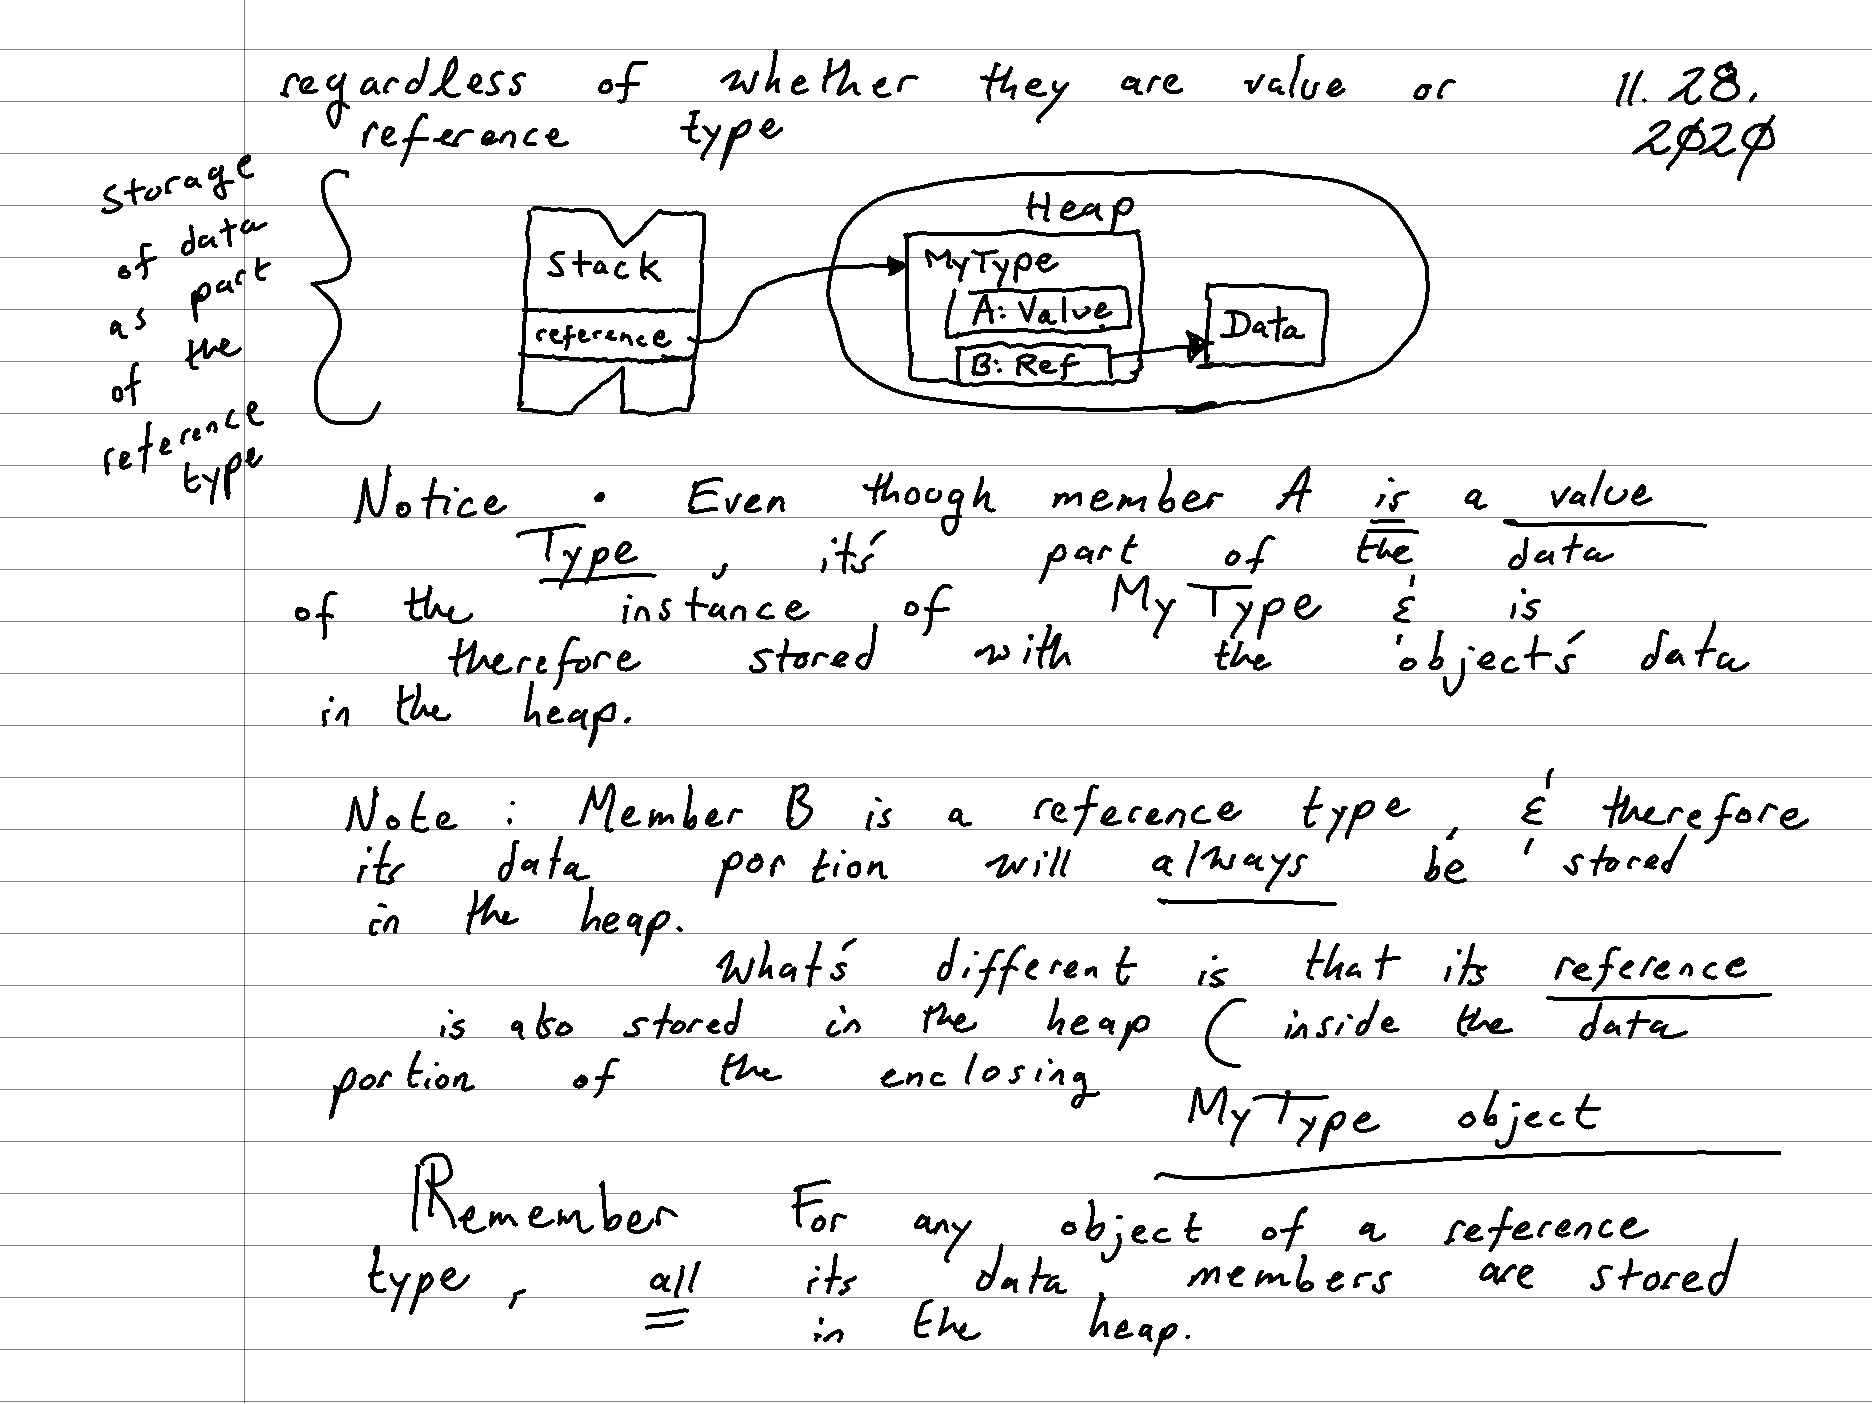 regardless of whether they are value or
reference type
11. 28.
2020
storage
of data
as part
of the
reference
type
Stack
reference
Heap
MyType
A: Value
B: Ref
Data
Notice : Even though member A is a value
Type, it's part of the data
of the instance of MyType & is
therefore stored with the object's data
in the heap.
Note : Member B is a reference type, & therefore
its data portion will always be stored
in the heap.
What's different is that its reference
is also stored in the heap (inside the data
portion of the enclosing
MyType object
Remember For any object of a reference
type, all its data members are stored
in the heap.